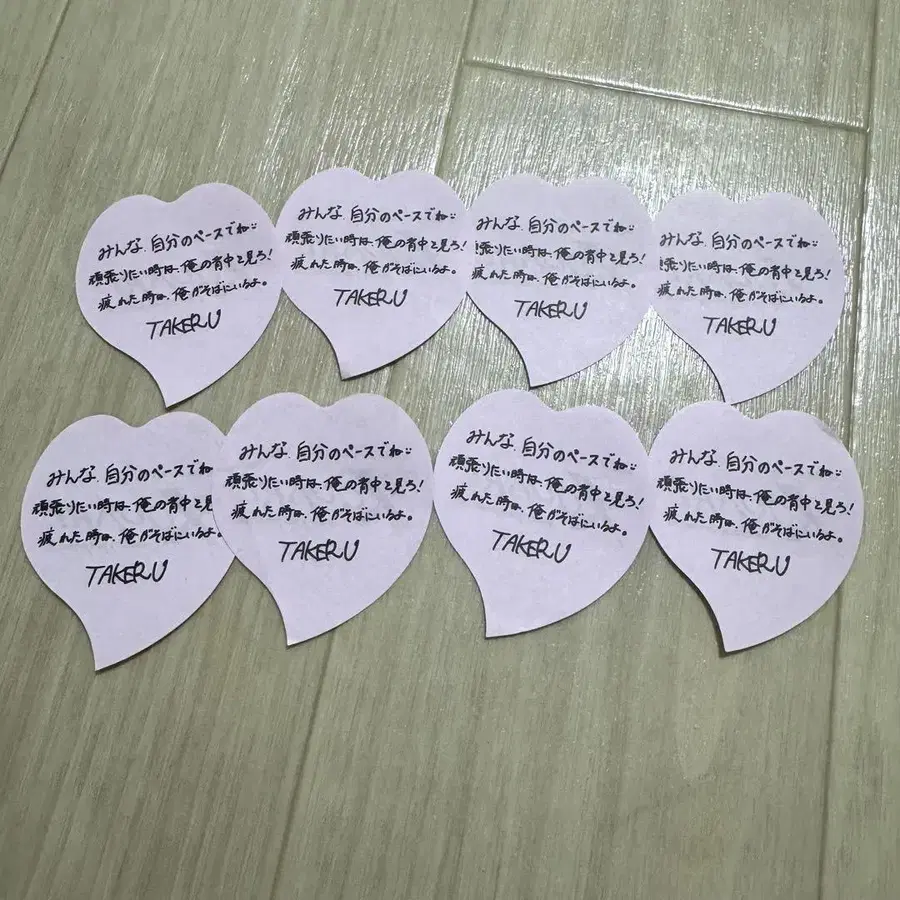 みんな、自分のペースでね
頑張りたい時は、俺の背中を見ろ!
疲れた時は、俺がそばにいるよ。
TAKERU
みんな、自分のペースでね
頑張りたい時は、俺の背中を見ろ!
疲れた時は、俺がそばにいるよ。
TAKERU
みんな、自分のペースでね
張りたい時は、俺の背中を見ろ!
疲れた時は、俺がそばにいるよ。
TAKERU
みんな、自分のペースでね
張りたい時は、俺の背中を見ろ!
疲れた時は、俺がそばにいるよ。
TAKERU
みんな、自分のペースでね
頑張りたい時は、俺の背中を見
疲れた時は、俺がそばにいるよ
TAKERU
みんな、自分のペースでね
頑張りたい時は、俺の背中を見ろ!
疲れた時は、俺がそばにいるよ。
TAKERU
みんな、自分のペースでね
頑張りたい時は、俺の背中を見ろ!
疲れた時は、俺がそばにいるよ。
TAKERU
みんな、自分のペースでね
頑張りたい時は、俺の背中を見ろ!
疲れた時は、俺がそばにいるよ。
TAKERU